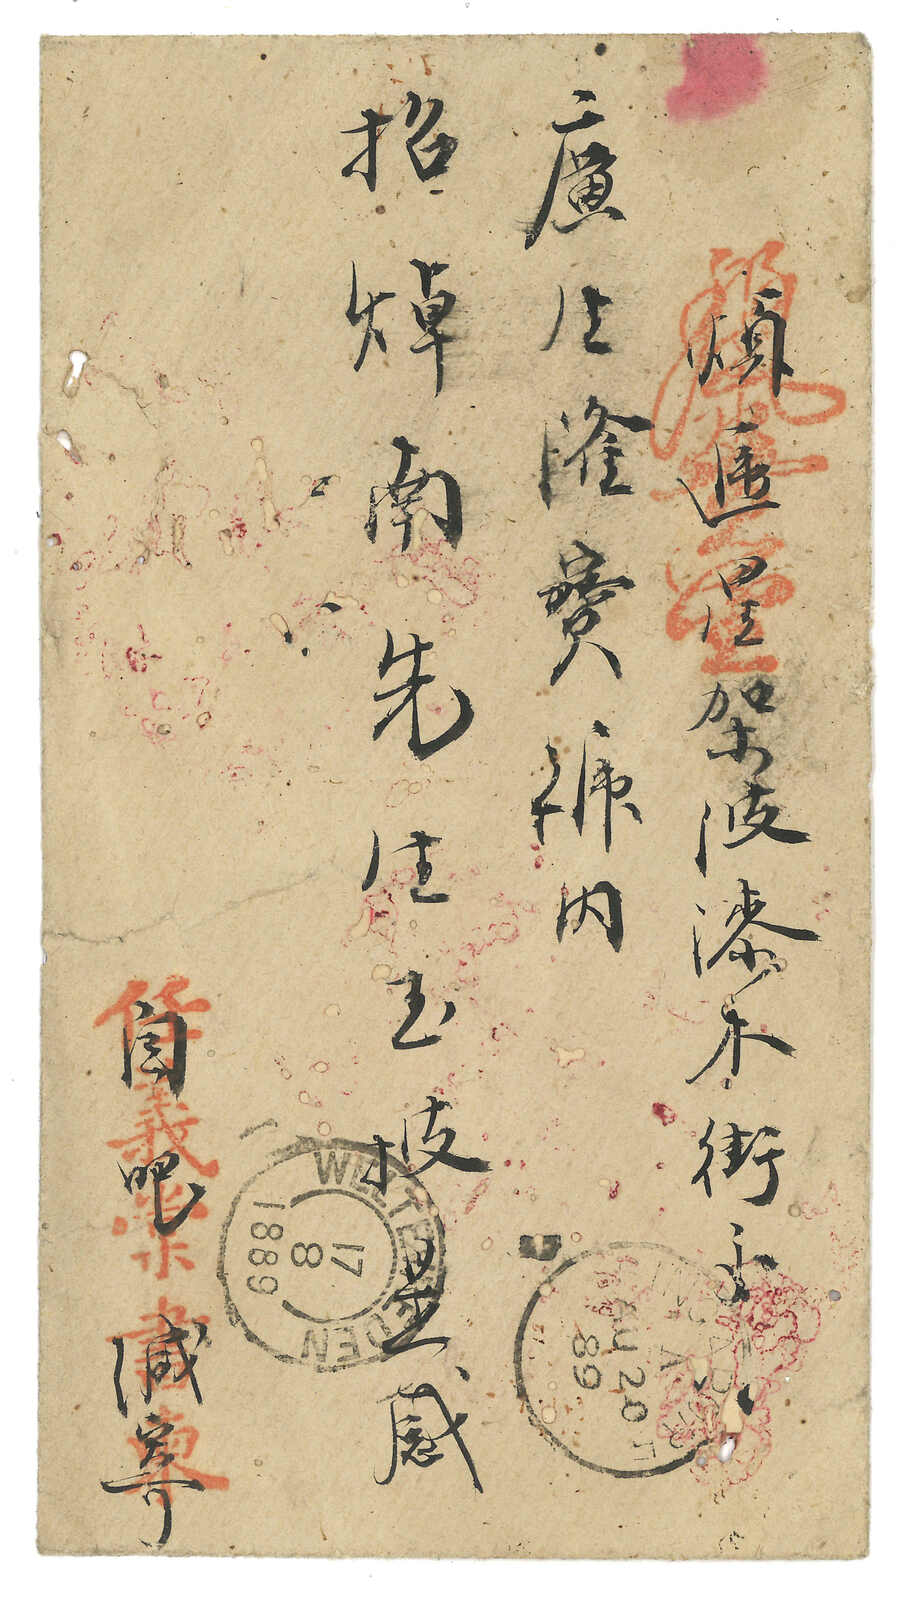 煩遞星架波漆木街交
廣生隆寶號内
招焯南先生玉披是感
自吧 緘寄
WELTEVREDEN
17
8
1889
SINGAPORE
AU 20
89